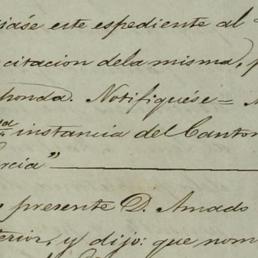 este espediente al
citacion dela misma,
honda. Notifiquése=
instancia del Canton
rcia"
presente D. Amado
terior, y dijo: que nom